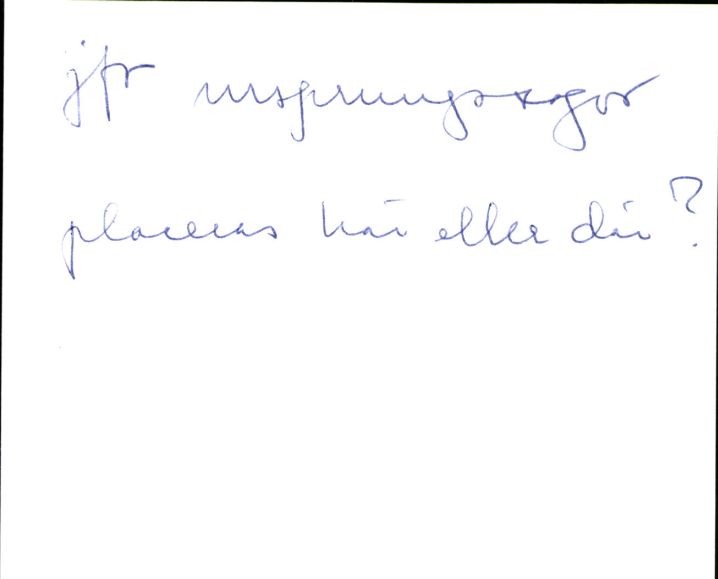 jfr ursprungssagor
placeras här eller där?